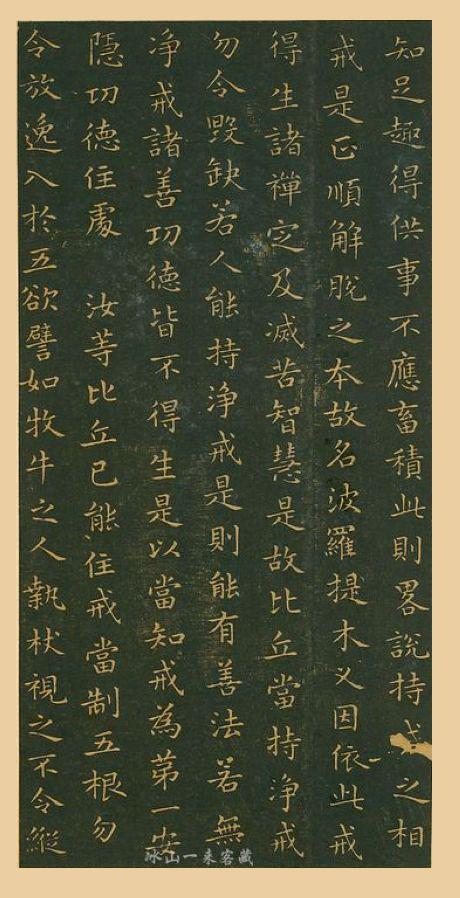 知足趣得供事不應畜積此則畧說持戒之相
戒是正順解脫之本故名波羅提木叉因依此戒
得生諸禪定及滅苦智慧是故比丘當持淨戒
勿令毀缺若人能持淨戒是則能有善法若無
淨戒諸善功德皆不得生是以當知戒為第一安
隱功德住處 汝等比丘已能住戒當制五根勿
令放逸入於五欲譬如牧牛之人執杖視之不令縱
冰山一来客藏